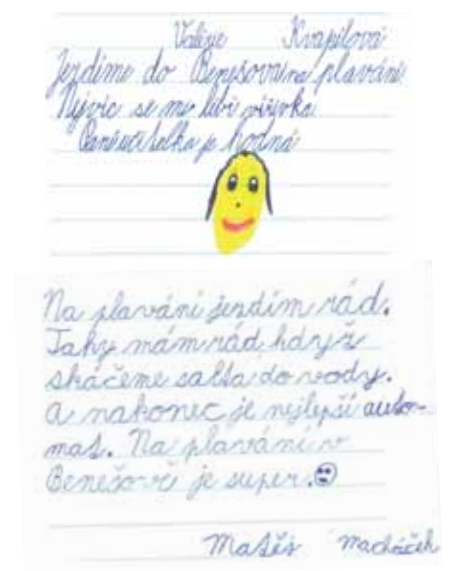 Valerie Kvapilová
Jezdíme do Benešova na plavání
Nejvíc se mi líbí vířivka
Paní učitelka je hodná
Na plavání jezdím rád.
Taky mám rád když
skáčeme salta do vody.
A nakonec je nejlepší auto-
mat. Na plavání v
Benešově je super.
Matěj Macháček